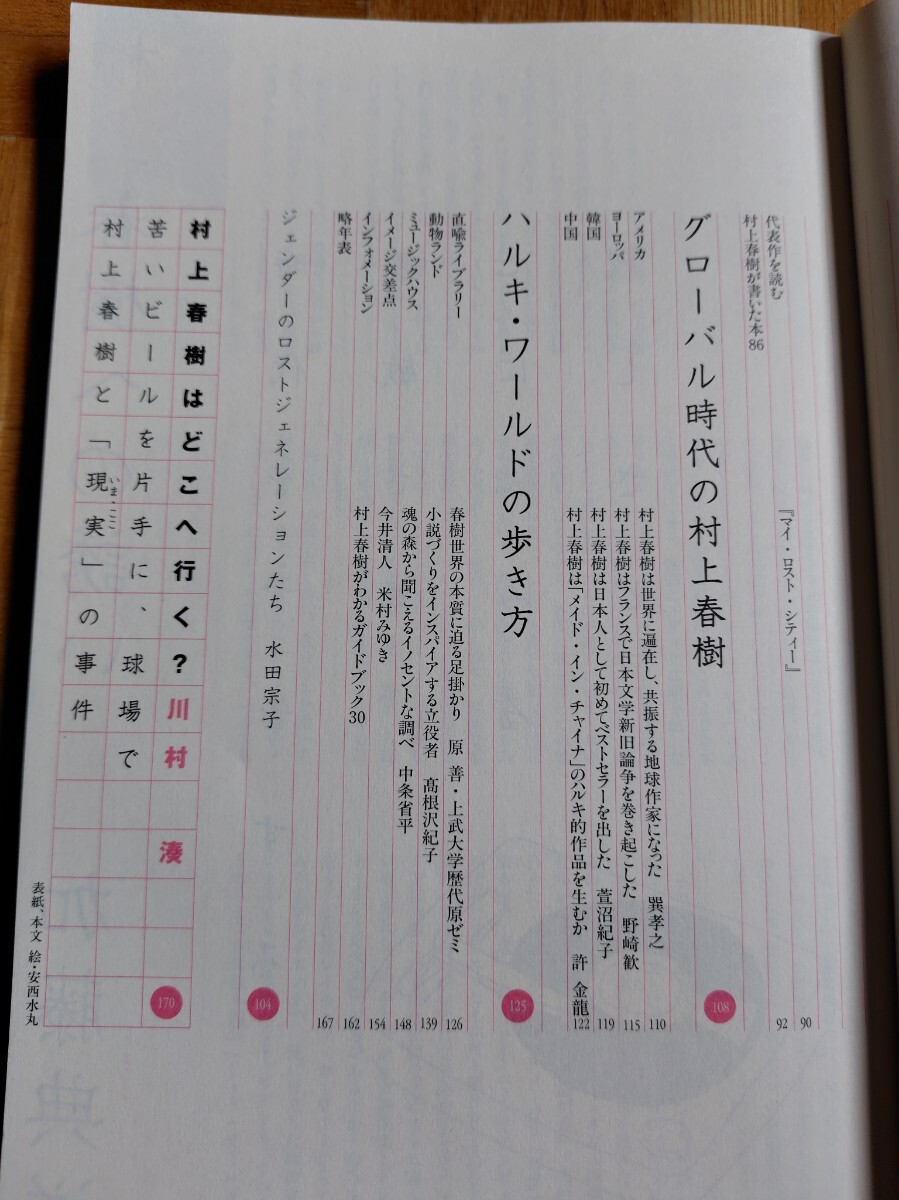 代表作を読む 『マイ・ロスト・シティー』 90
村上春樹が書いた本86 92
グローバル時代の村上春樹 108
アメリカ 村上春樹は世界に遍在し、共振する地球作家になった 巽孝之 110
ヨーロッパ 村上春樹はフランスで日本文学新旧論争を巻き起こした 野崎歓 115
韓国 村上春樹は日本人として初めてベストセラーを出した 萱沼紀子 119
中国 村上春樹は「メイド・イン・チャイナ」のハルキ的作品を生むか 許 金龍 122
ハルキ・ワールドの歩き方 125
直喩ライブラリー 春樹世界の本質に迫る足掛かり 原 善・上武大学歴代原ゼミ 126
動物ランド 小説づくりをインスパイアする立役者 髙根沢紀子 139
ミュージックハウス 魂の森から聞こえるイノセントな調べ 中条省平 148
イメージ交差点 今井清人 米村みゆき 154
インフォメーション 村上春樹がわかるガイドブック30 162
略年表 167
ジェンダーのロストジェネレーションたち 水田宗子 104
村上春樹はどこへ行く？川村 湊
苦いビールを片手に、球場で
村上春樹と「現実」の事件
いま・ここ
170
表紙、本文 絵・安西水丸